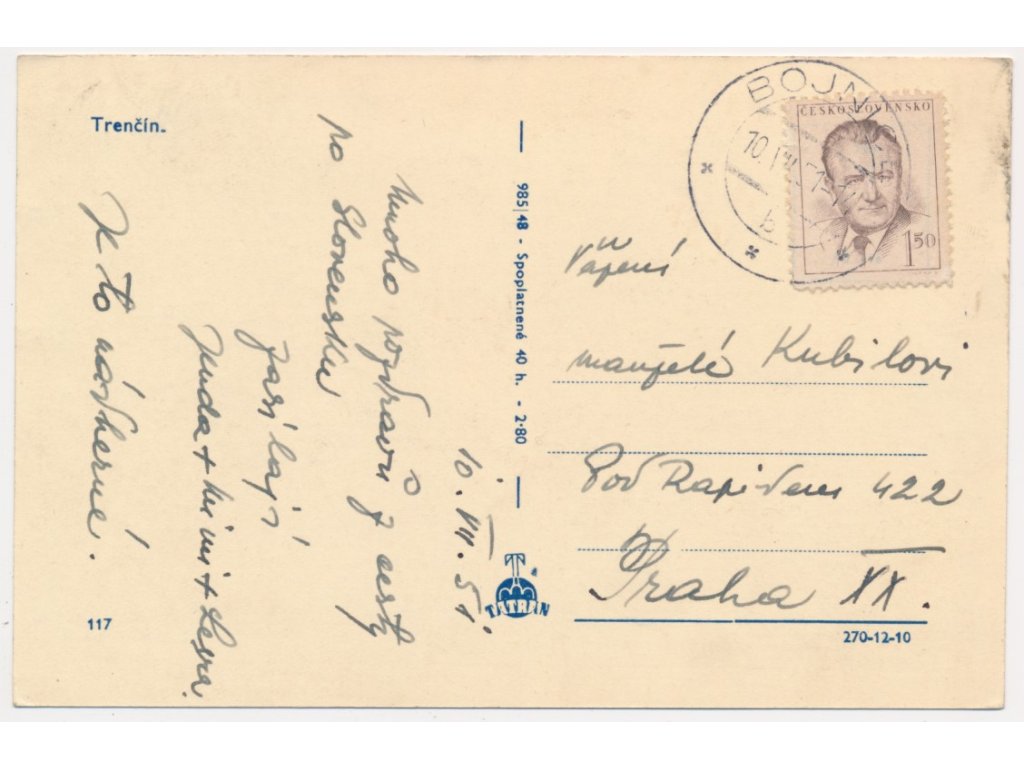 Trenčín.
10. VII. 51.
Mnoho pozdravů z cesty
po Slovensku
zasílají
Jenda + Mimi +
Je to nádherné.
117
985/48 - Spoplatnené 40 h. - 2·80
TATRAN
BOJNICE
10. VII. 51
b
ČESKOSLOVENSKO
1 50
Vážení
manželé Kubilovi
Pod Rapidem 422
Praha XX.
270-12-10